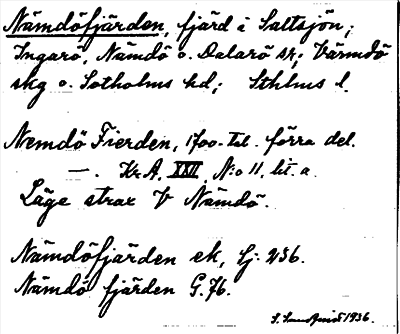 Nämdöfjärden, fjärd i Saltsjön;
Ingarö, Nämdö o. Dalarö sk; Värmdö
skg o. Sotholms hd; Sthlms l.
Nemdö Fierden, 1700-tal. förra del.
— . Kr.A. XXII. N:o 11, lit. a.
Läge strax V Nämdö.
Nämdöfjärden ek, Sj. 236.
Nämdö fjärden G.76.
S. 1936.